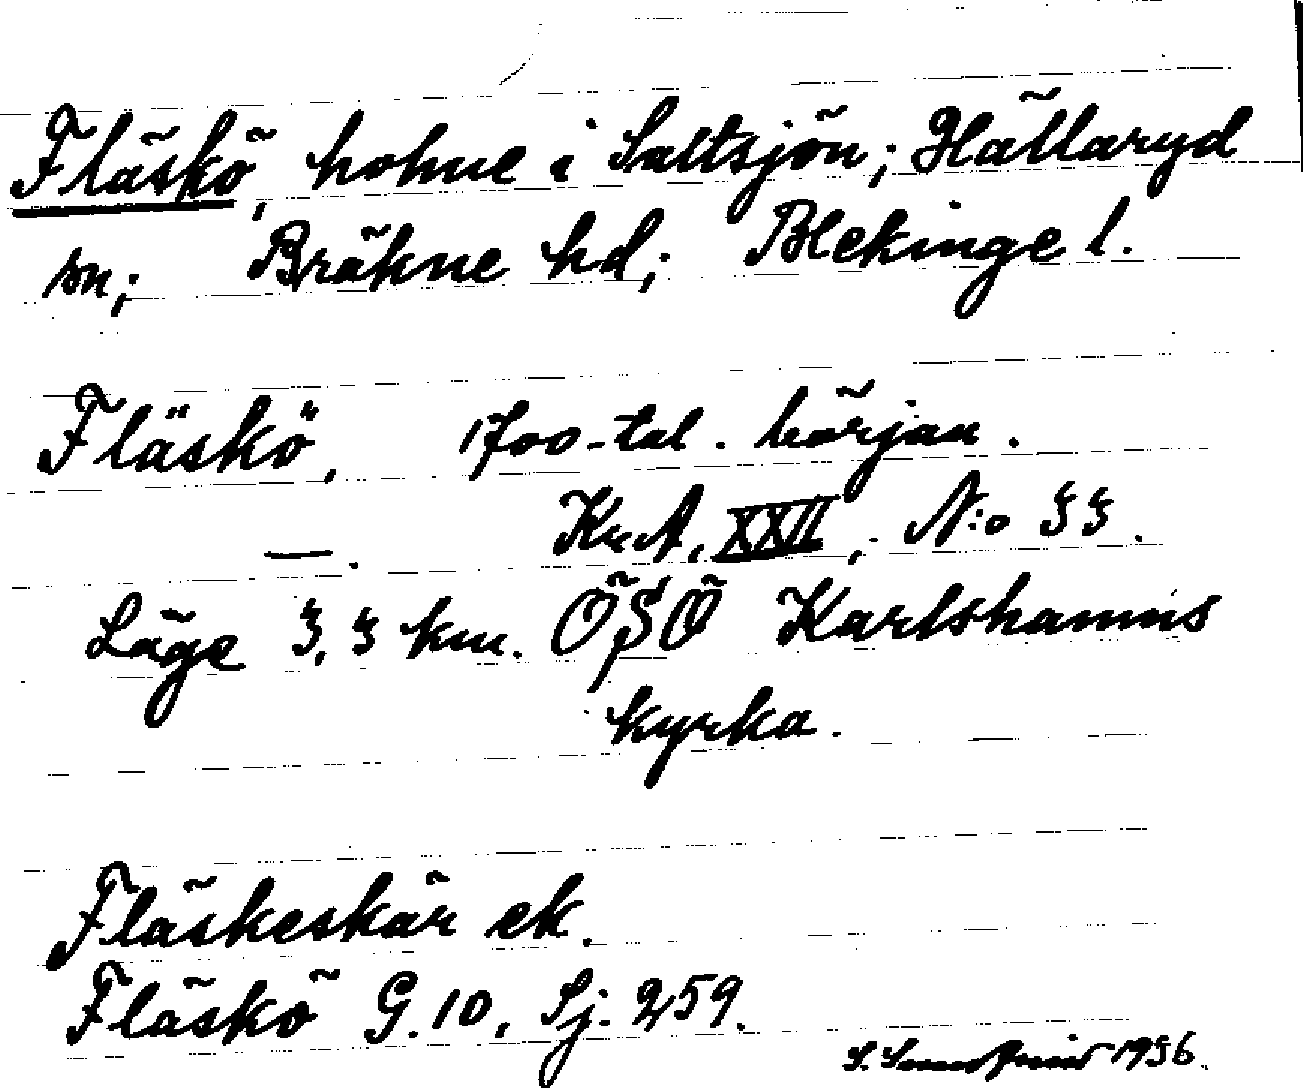 Fläskö, holme i Saltsjön; Hällaryd
sn; Bräkne hd; Blekinge l.
Fläskö, 1700-tal. början.
—. KrA, XXII, N:o 55.
Läge 3,5 km. ÖSÖ Karlshamns
kyrka.
Fläskeskär ek.
Fläskö G.10. Sj. 259.
S. 1956.